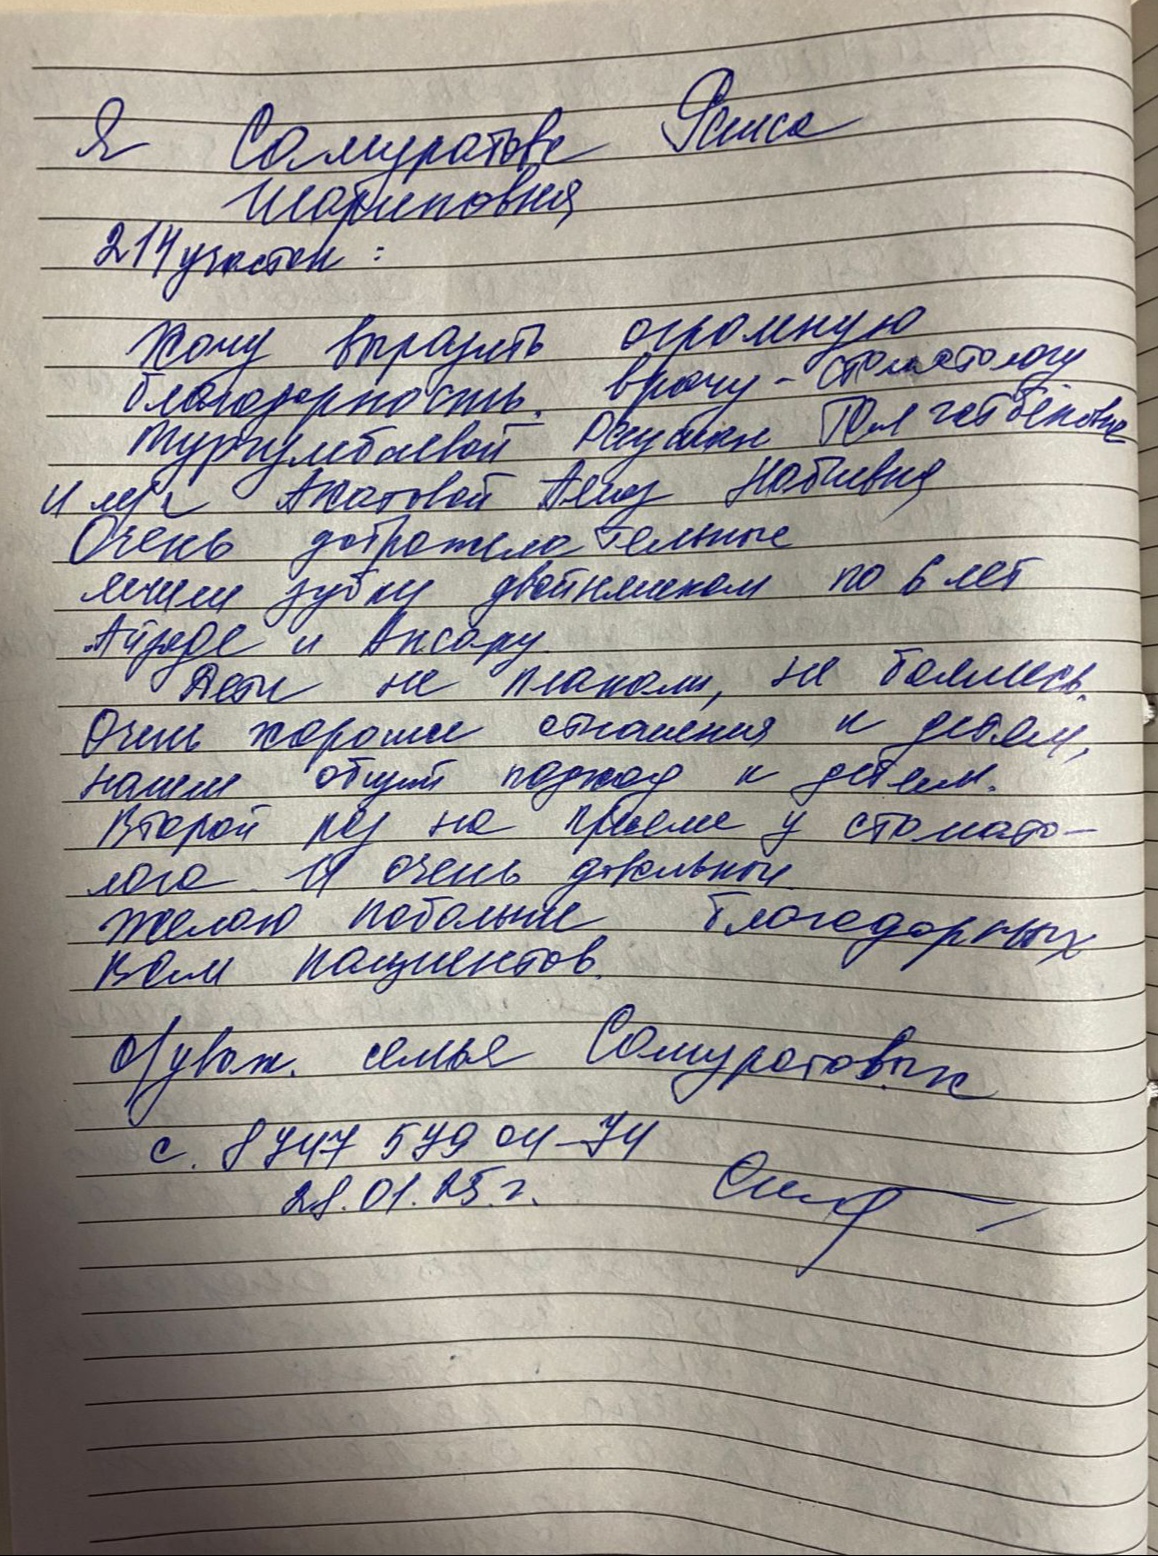 Я Самуратова Раиса
Шариповна
214 участок :
Хочу выразить огромную
благодарность врачу - стоматологу
Турчумбаевой Раушан Толгатбековне
и м/с Ахатовой Абиовна
Очень доброжелательные
лечили зубки двойняшкам по 6 лет
Айзаде и Ансару.
Дети не плакали, не боялись.
Очень хорошие отношения к детям,
нашли общий подход к детям.
Второй раз на приеме у стомато-
лога. Я очень довольны.
Желаю побольше благодарных
Вам пациентов.
с/уваж. семья Самуратовых
с. 8 747 579 04-74
28.01.25 г.